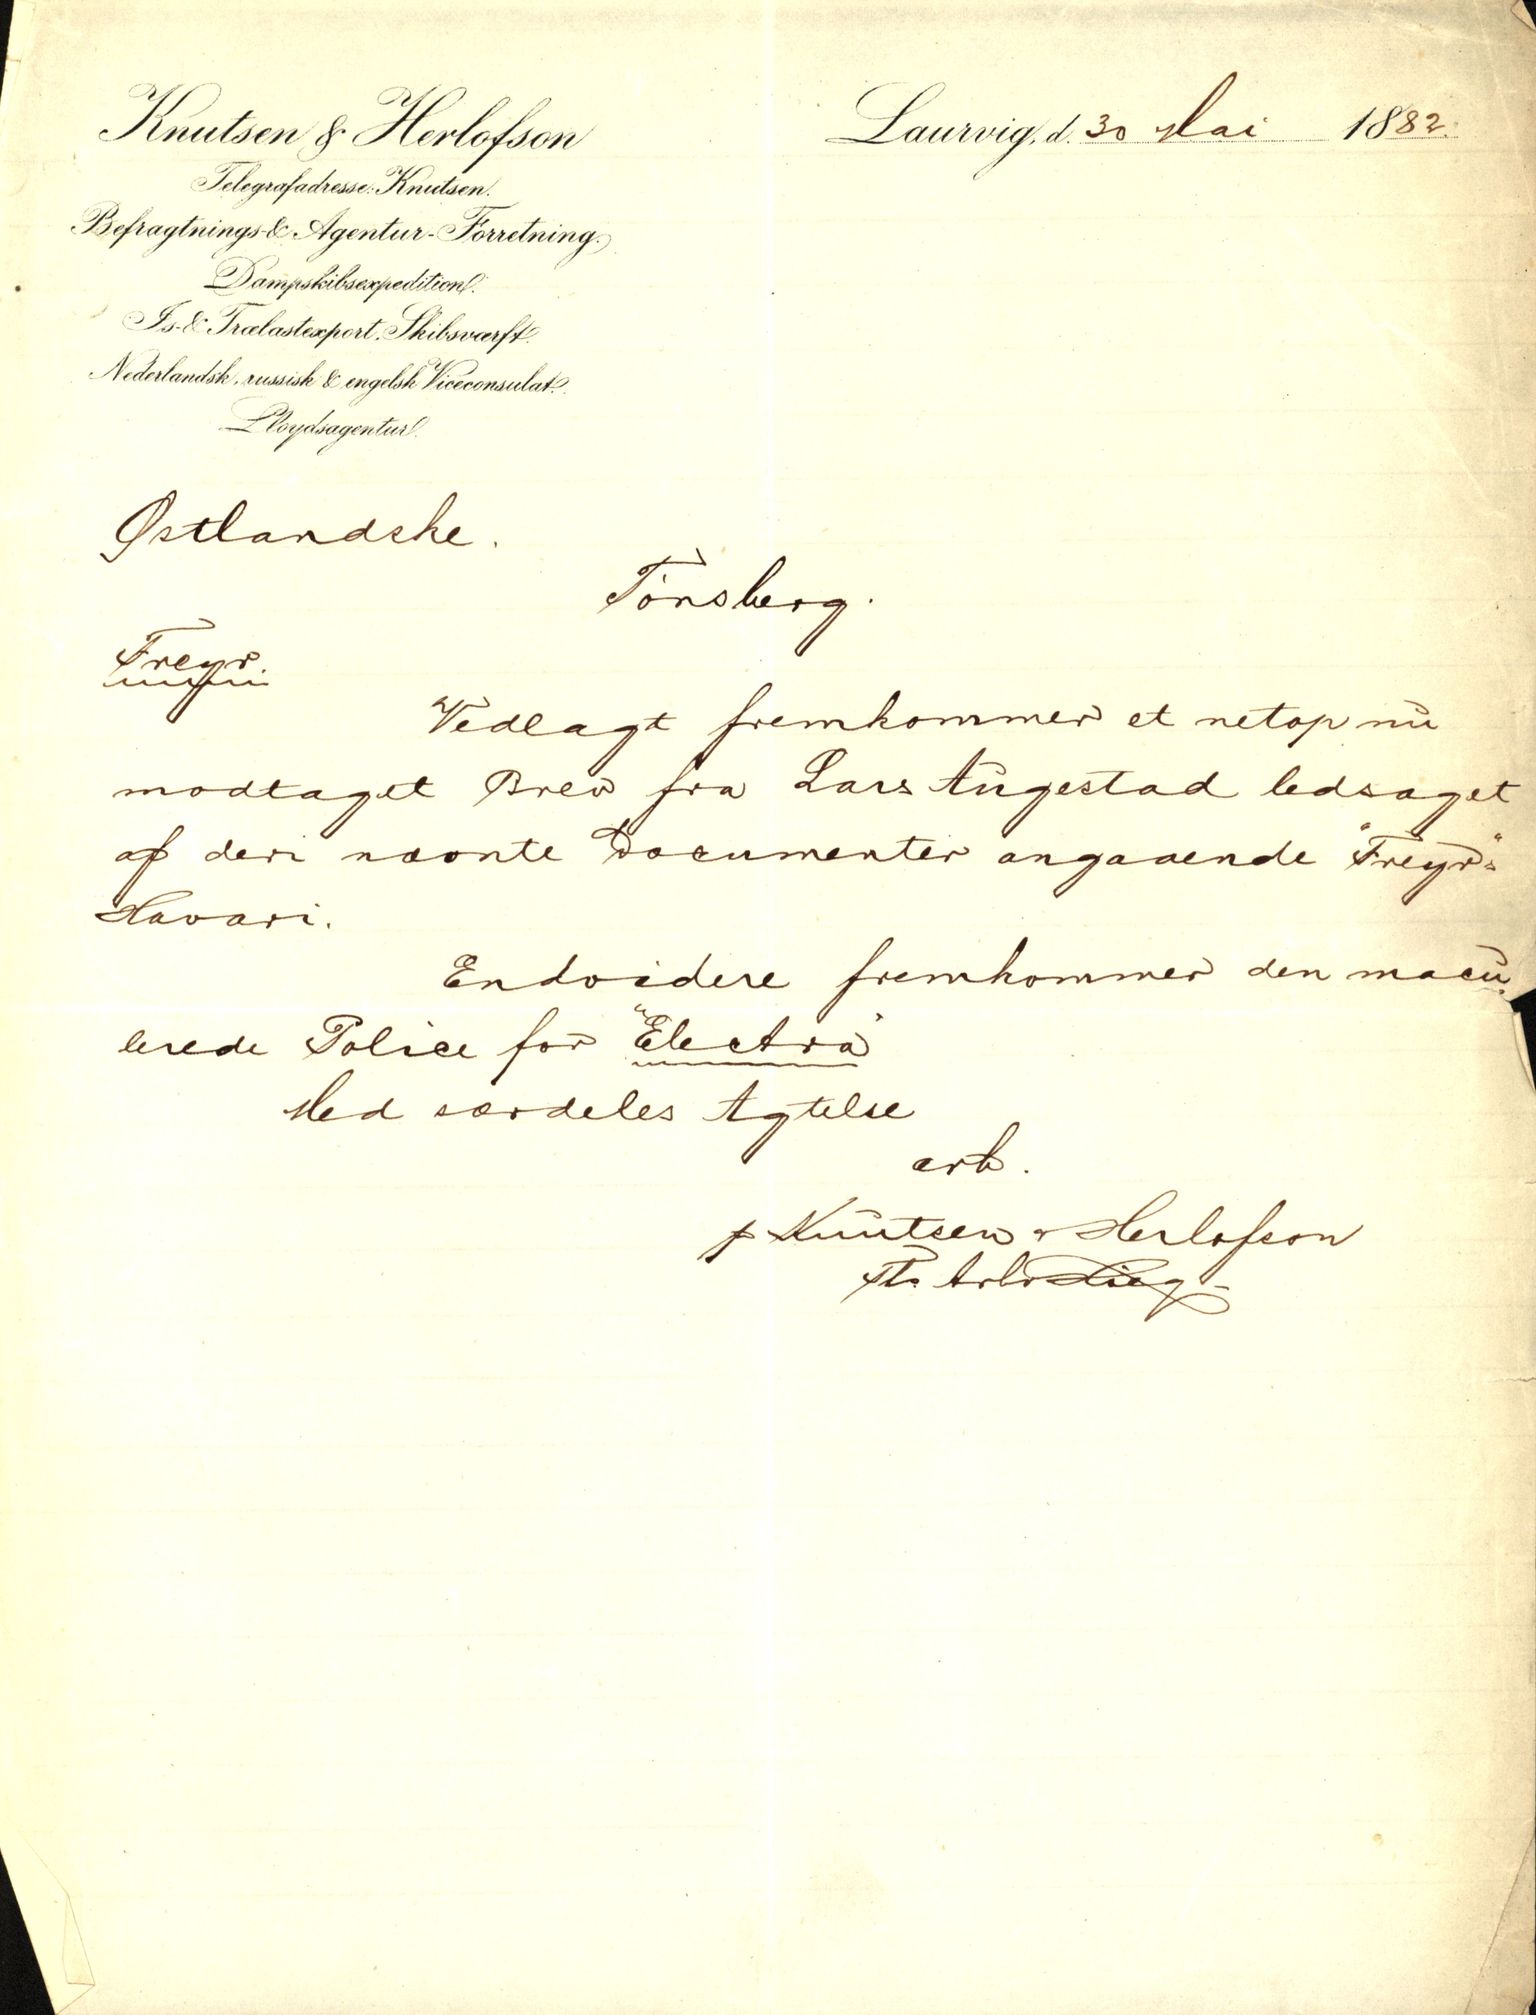 Knutsen & Herlofson
Telegrafadresse: Knutsen.
Befragtnings- & Agentur-Forretning.
Dampskibsexpedition.
Is- & Trælastexport. Skibsværft.
Nederlandsk, russisk & engelsk Viceconsulat.
Lloydsagentur.
Laurvig, d. 30 Mai 1882.
Østlandske.
Tönsberg.
Freyr.
Vedlagt fremkommer et netop nu
modtaget Brev fra Lars Augestad ledsaget
af deri nævnte Documenter angaaende "Freyr"s
Havari.
Endvidere fremkommer den macu-
lerede Police for "Electra"
Med særdeles Agtelse
erb.
p Knutsen & Herlofson